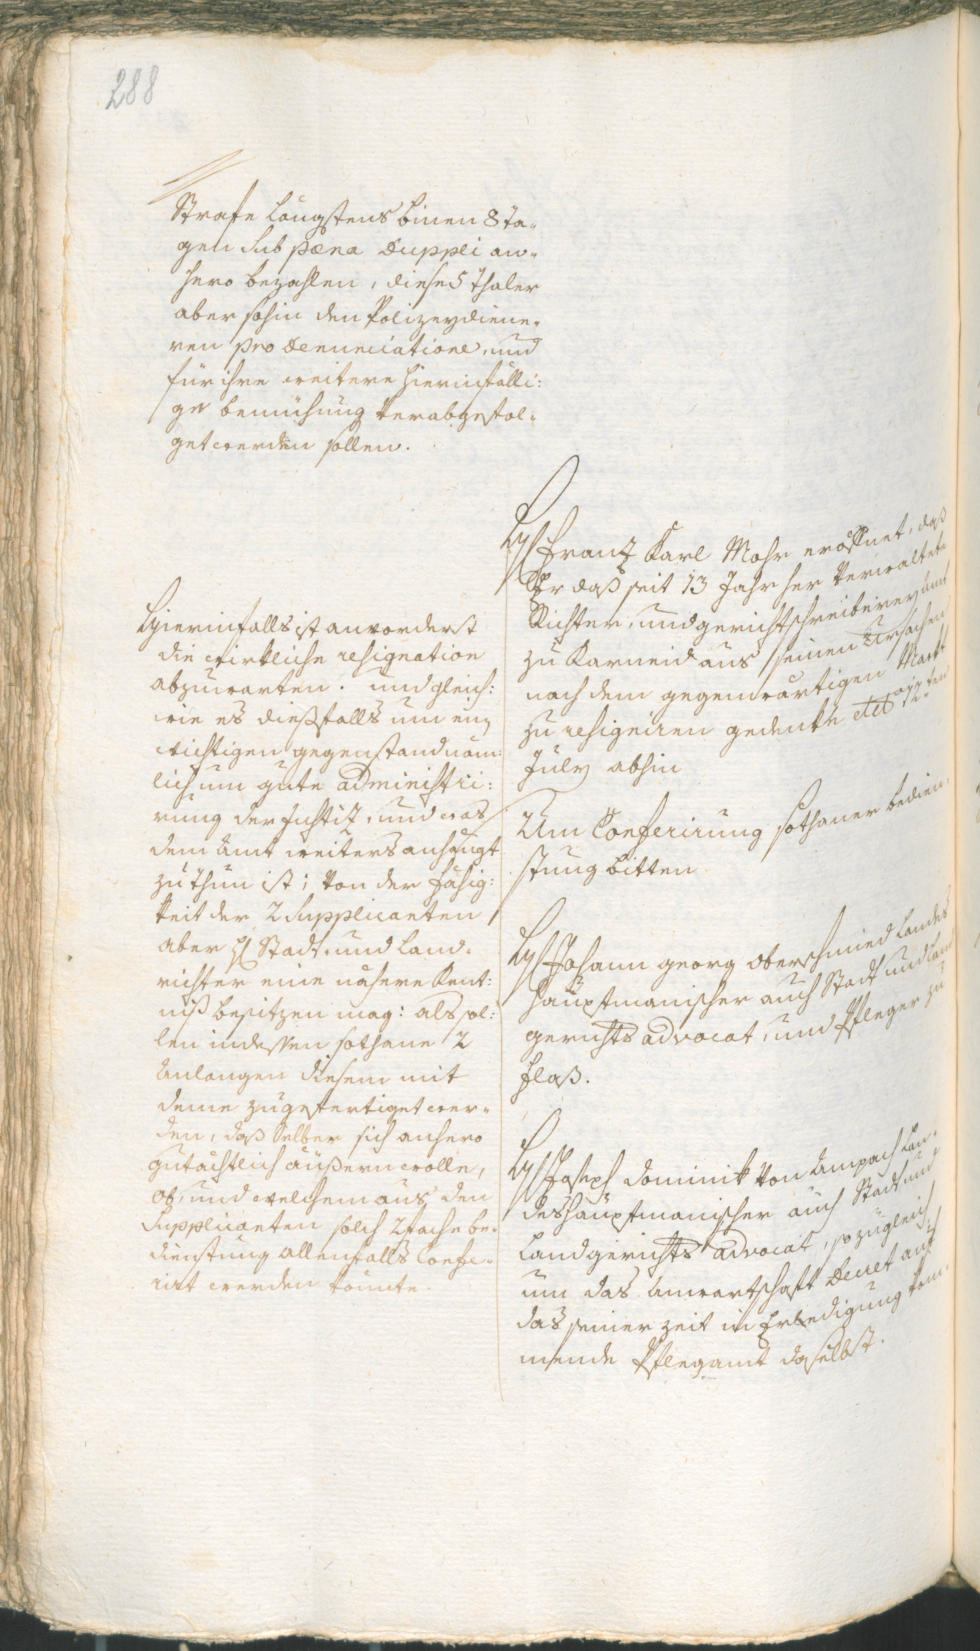 288
Strafe längstens binen 8 ta-
gen sub poena dupli an-
hero bezahlen, diese 5 thaler
aber sohin den Polizeydiene-
ren pro denunciatione, und
für ihre weitere hierinfälli:
ge bemühung verabgefol-
get werden sollen.
Hierinfalls ist anvorderst
die wirkliche resignation
abzuwarten. und gleich:
wie es dießfalls um einen
wichtigen gegenstand näm:
lich um gute administri:
rung der Justitz, und was
dem Amt weiters anhengt
zu thun ist; von der fähig:
keit der 2 Supplicanten
aber H Stadt- und Land-
richter eine nähere kent:
niß besitzen mag: als sol:
len indessen sothane 2
Anlangen diesem mit
deme zugefertiget wer-
den, daß selber sich anhero
gutächtlich äußern wolle,
ob, und welchem aus den
Supplicanten solch 2fache be-
dienstung allenfalls confe-
rirt werden könnte.
H Franz Karl Mohr eröffnet, daß
Er daß seit 13 Jahr her verwaltete
Richter- und gerichtschreiberey amt
zu Karneid aus seinen Ursachen
nach dem gegenwärtigen Markt
zu resigniren gedenke dto 12ten
July abhin
Um Conferirung sothaner bedien-
stung bitten
H Johann georg Oberschmied Landes
hauptmanischer auch Stadt und Land
gerichts advocat, und Pfleger zu
Flaß.
H Joseph Dominik von Ampach Lan-
deshauptmanischer auch Stadt und
Landgerichts advocat, so zugleich
um das Anwartschaft Decret auf
das seiner zeit in Erledigung kom-
mende Pflegamt daselbst.